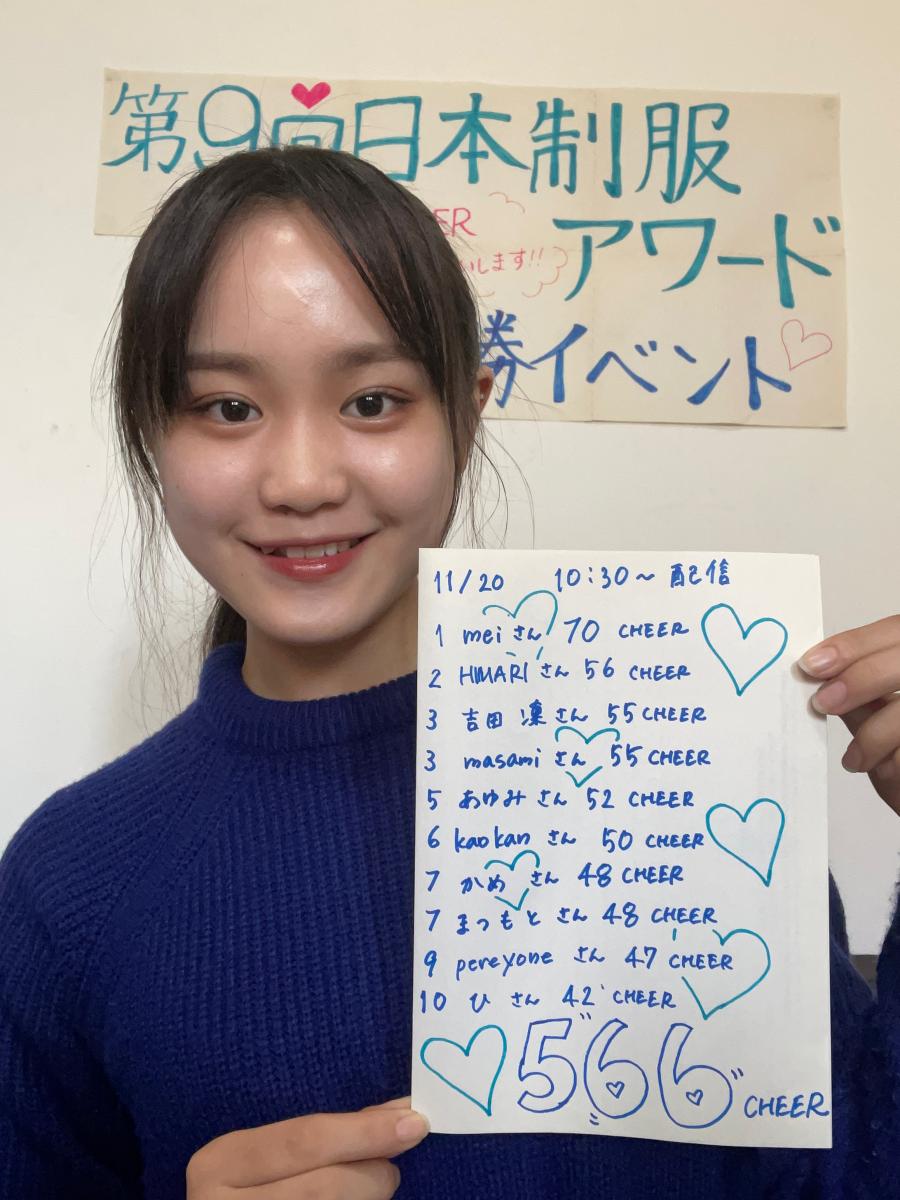 第9回日本制服
アワード
ER
いします!!
勝イベント
11/20 10:30～ 配信
1 meiさん 70 CHEER
2 HIMARIさん 56 CHEER
3 吉田 凜さん 55 CHEER
3 masamiさん 55 CHEER
5 あゆみさん 52 CHEER
6 kaokanさん 50 CHEER
7 かめさん 48 CHEER
7 まつもとさん 48 CHEER
9 pereyoneさん 47 CHEER
10 ひさん 42 CHEER
566 CHEER